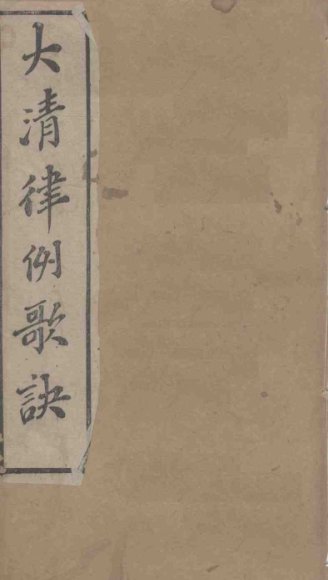 大清律例歌訣